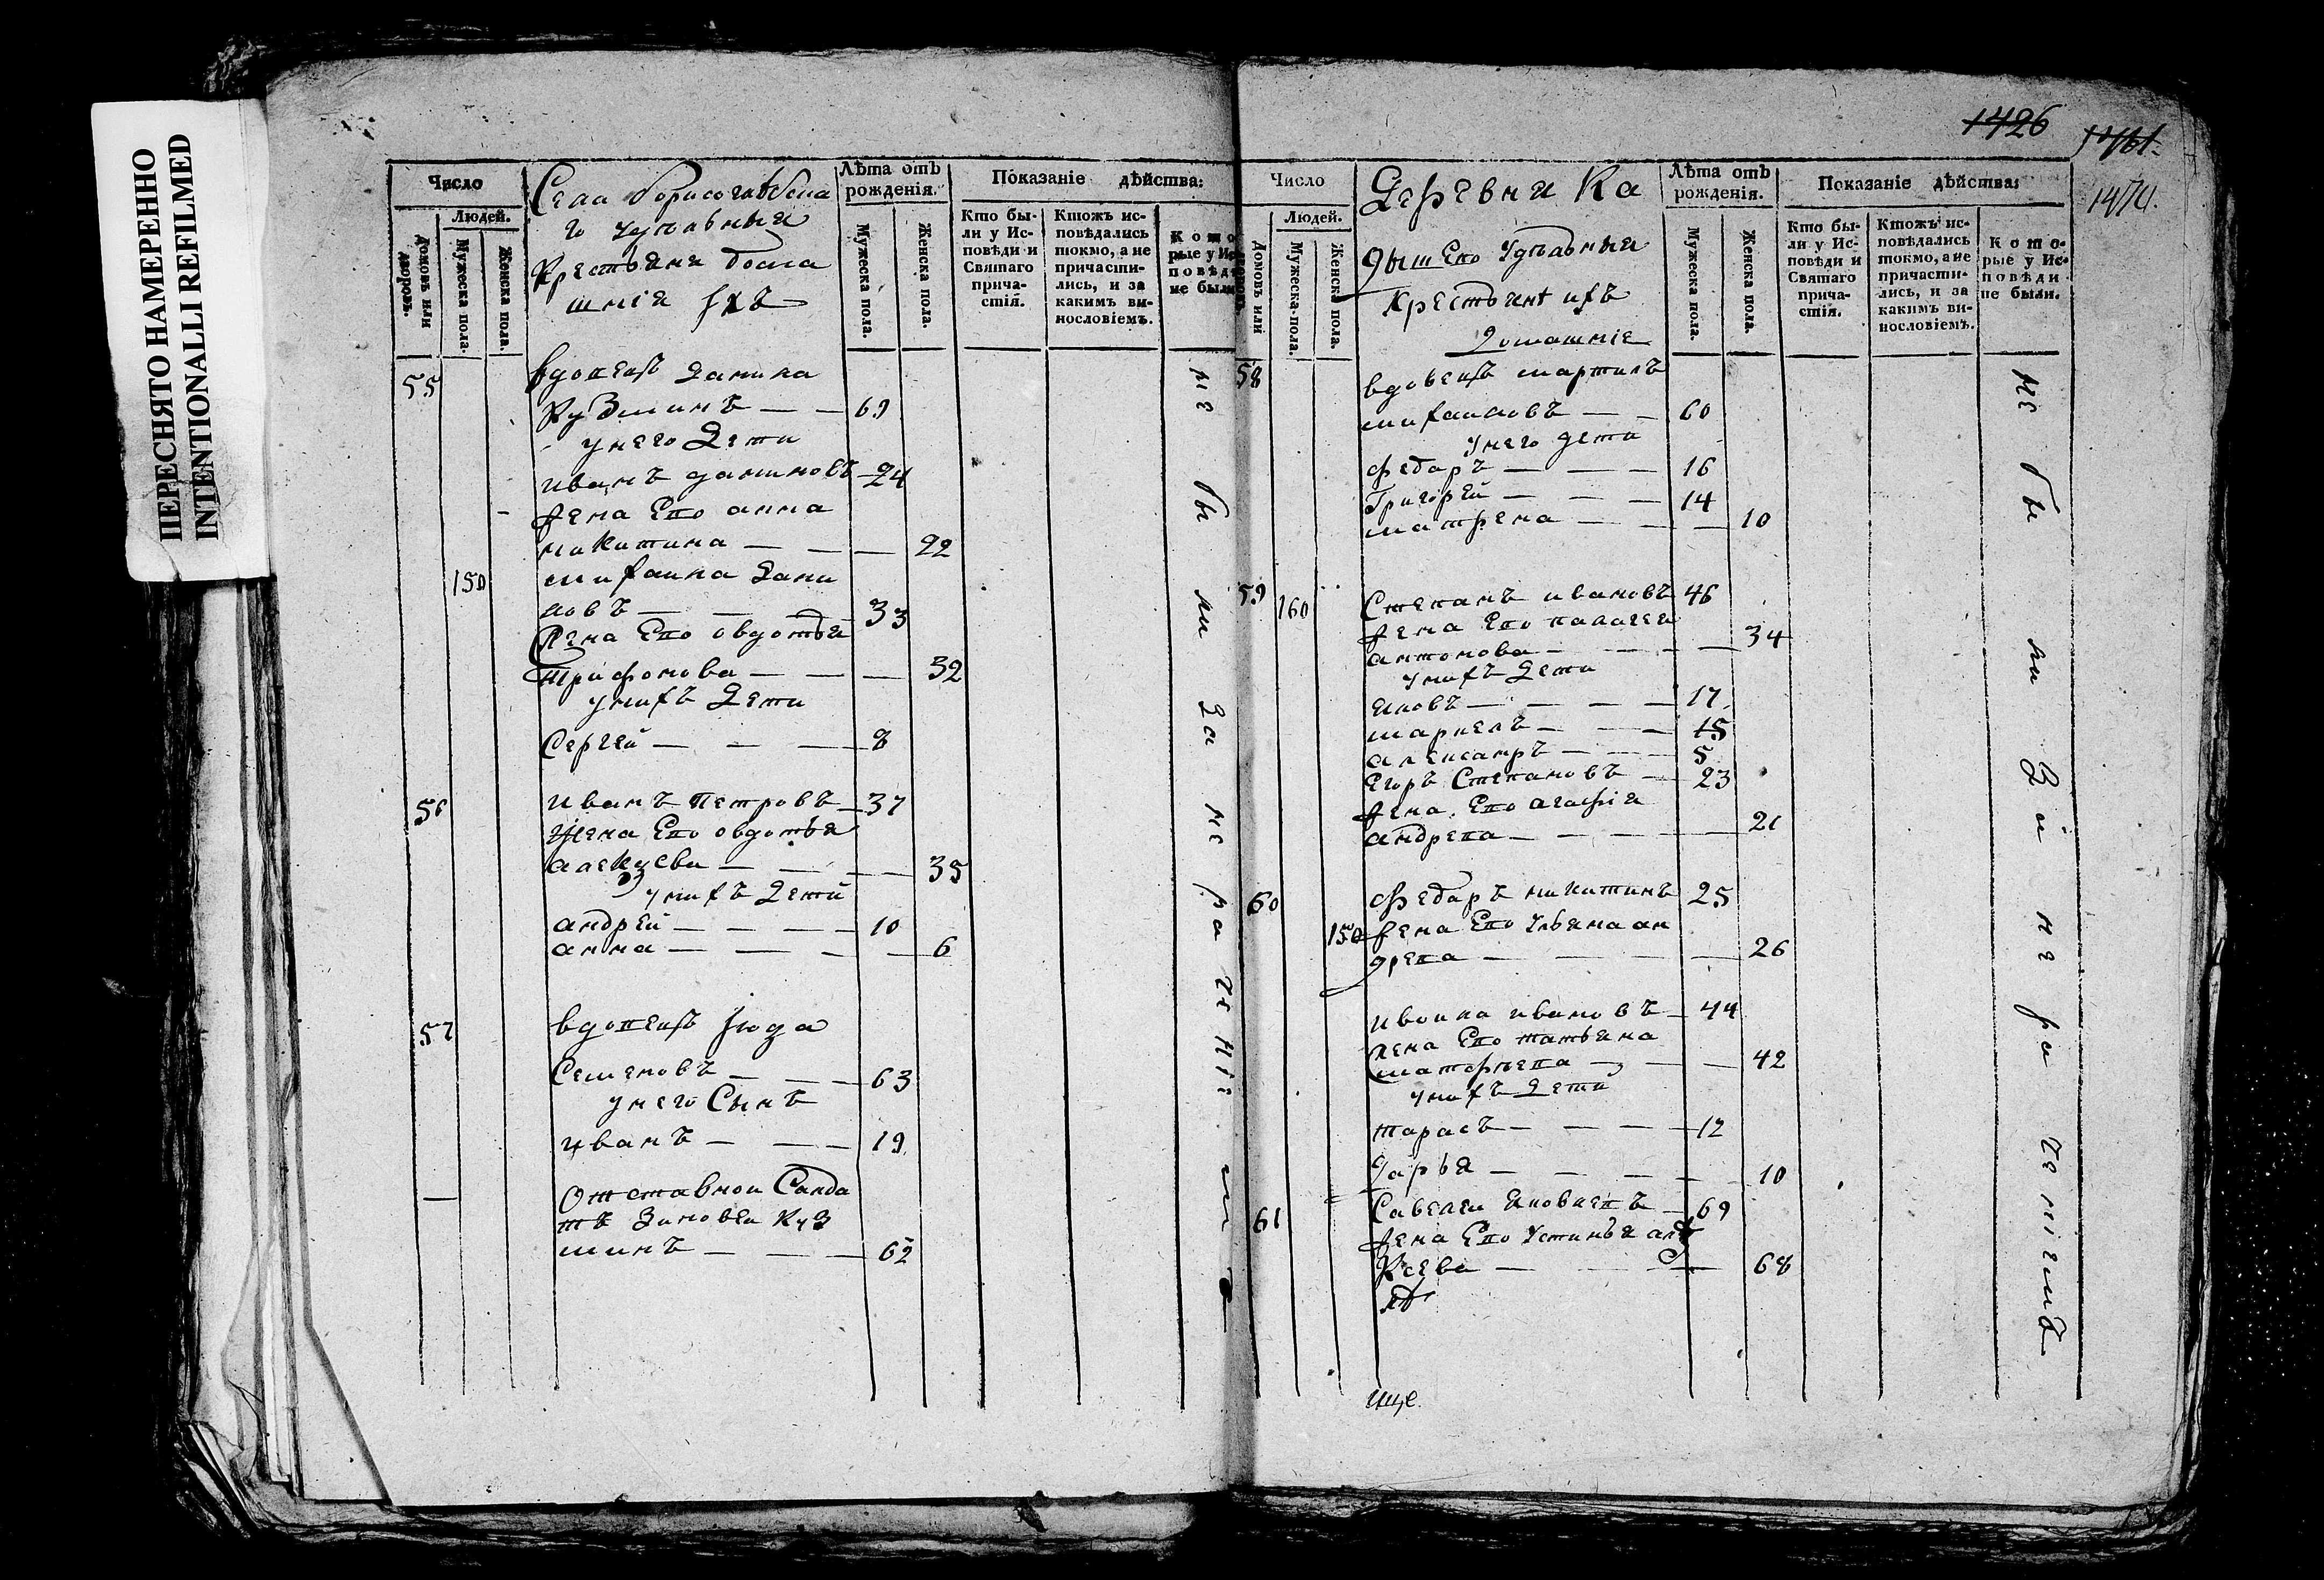 ПЕРЕСНЯТО НАМЕРЕННО
INTENTIONALLI REFILMED
Число
Людей.
домовъ или дворовъ.
Мужеска пола.
Женска пола.
Села
го удѣльныя
крестьяне дома
шнія ихъ
Лѣта отъ
рожденія.
Мужеска пола.
Женска пола.
Показаніе дѣйства:
Кто бы-
ли у Ис-
повѣди и
Святаго
прича-
стія.
Ктожъ ис-
повѣдались
токмо, а не
причасти-
лись, и за
какимъ ви-
нословіемъ.
Кото
рые у Ис
повѣди
не были
55 вдовецъ Данила
Кузминъ — — 69
у него Дети
иванъ даниловъ 24
жена Ево анна
никитина — — — 22
150 михаила Дани
ловъ — — 33
жена Ево овдотья
трифонова — — — 32
у нихъ Дети
Сергей — — — 8
56 иванъ Петровъ 37
жена Ево овдотья
алекѣева — — — 35
у нихъ Дети
андрей — — — 10
анна — — — — 6
57 вдовецъ июда
Семеновъ — — 63
у него Сынъ
иванъ — — — 19
— Отставнои Салда
тъ Зиновеи Куз
минъ — — — 62
не бы ли за не ра че ніе м
1426
1474.
Число
Людей.
Домовъ или
Мужеска пола.
Женска пола.
Деревни Ка
Удѣльныя
крестьяне ихъ
Домашніе
Лѣта отъ
рожденія.
Мужеска пола.
Женска пола.
Показаніе дѣйства:
Кто бы-
ли у Ис-
повѣди и
Святаго
прича-
стія.
Ктожъ ис-
повѣдались
токмо, а не
причасти-
лись, и за
какимъ ви-
нословіемъ.
Кото-
рые у Ис-
повѣди
не были.
58 вдовецъ мартинъ
михаиловъ — — 60
у него дети
федаръ — — — 16
Григорей — — — 14
матрена — — — 10
59 160 Степанъ ивановъ 46
жена Ево палагея
антонова — — — 34
у нихъ Дети
яковъ — — — — 17
маркелъ — — — 15
александръ — — 5
Егоръ Степановъ — 23
жена Ево агафія
андрева — — — — 21
60 федаръ никитинъ 25
150 жена Ево Ульяна ан
древа — — — — 26
ивоила ивановъ — 44
жена Ево татьяна
матфеева — — — 42
у нихъ Дети
тарасъ — — — — 12
дарья — — — — 10
61 Савелеи яковлевъ — 69
жена Ево Устинья але
ксева — — — 68
ище.
не бы ли за не ра че ніемъ